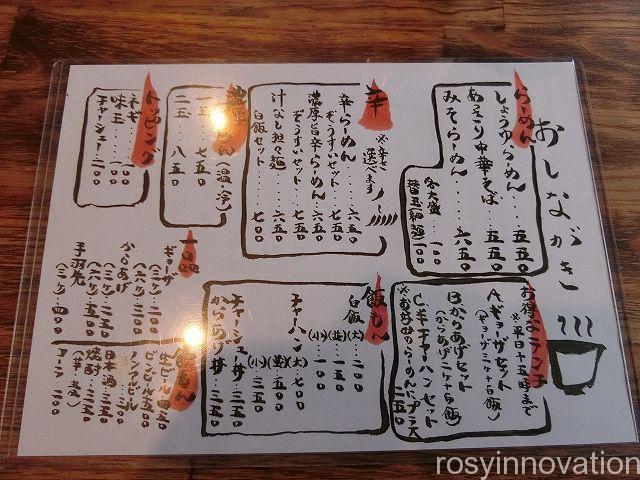 おしながき
らーめん
しょうゆらーめん……五五〇
あっさり中華そば……五五〇
みそらーめん……六五〇
各大盛……一〇〇
辛
※辛さ選べます
辛らーめん……六五〇
ぞうすいセット……七〇〇
濃厚旨辛らーめん……六五〇
ぞうすいセット……七〇〇
汁なし担々麺……六五〇
白飯セット……七〇〇
(温・冷)
一玉……七五〇
二玉……八五〇
トッピング
ネギ……一〇〇
味玉……一〇〇
チャーシュー……二〇〇
お得なランチ
※平日十五時まで
A、ギョーザセット
(ギョーザ三ケ+白飯)
B、からあげセット
(からあげ二ケ+白飯)
C、キチャーハンセット
※お好みのらーめんにプラス二五〇
飯もん
白飯(大)……二〇〇
(並)……一五〇
(小)……一〇〇
チャーハン(大)……七〇〇
(並)……五〇〇
(小)……三五〇
チャーシュー丼……三五〇
からあげ丼……三五〇
一品
ギョーザ
からあげ
手羽先
(三ケ)……四〇〇
生ビール……四五〇
ビンビール……五〇〇
ノンアルビール
日本酒
焼酎……三五〇
(芋・麦)
rosyinnovation